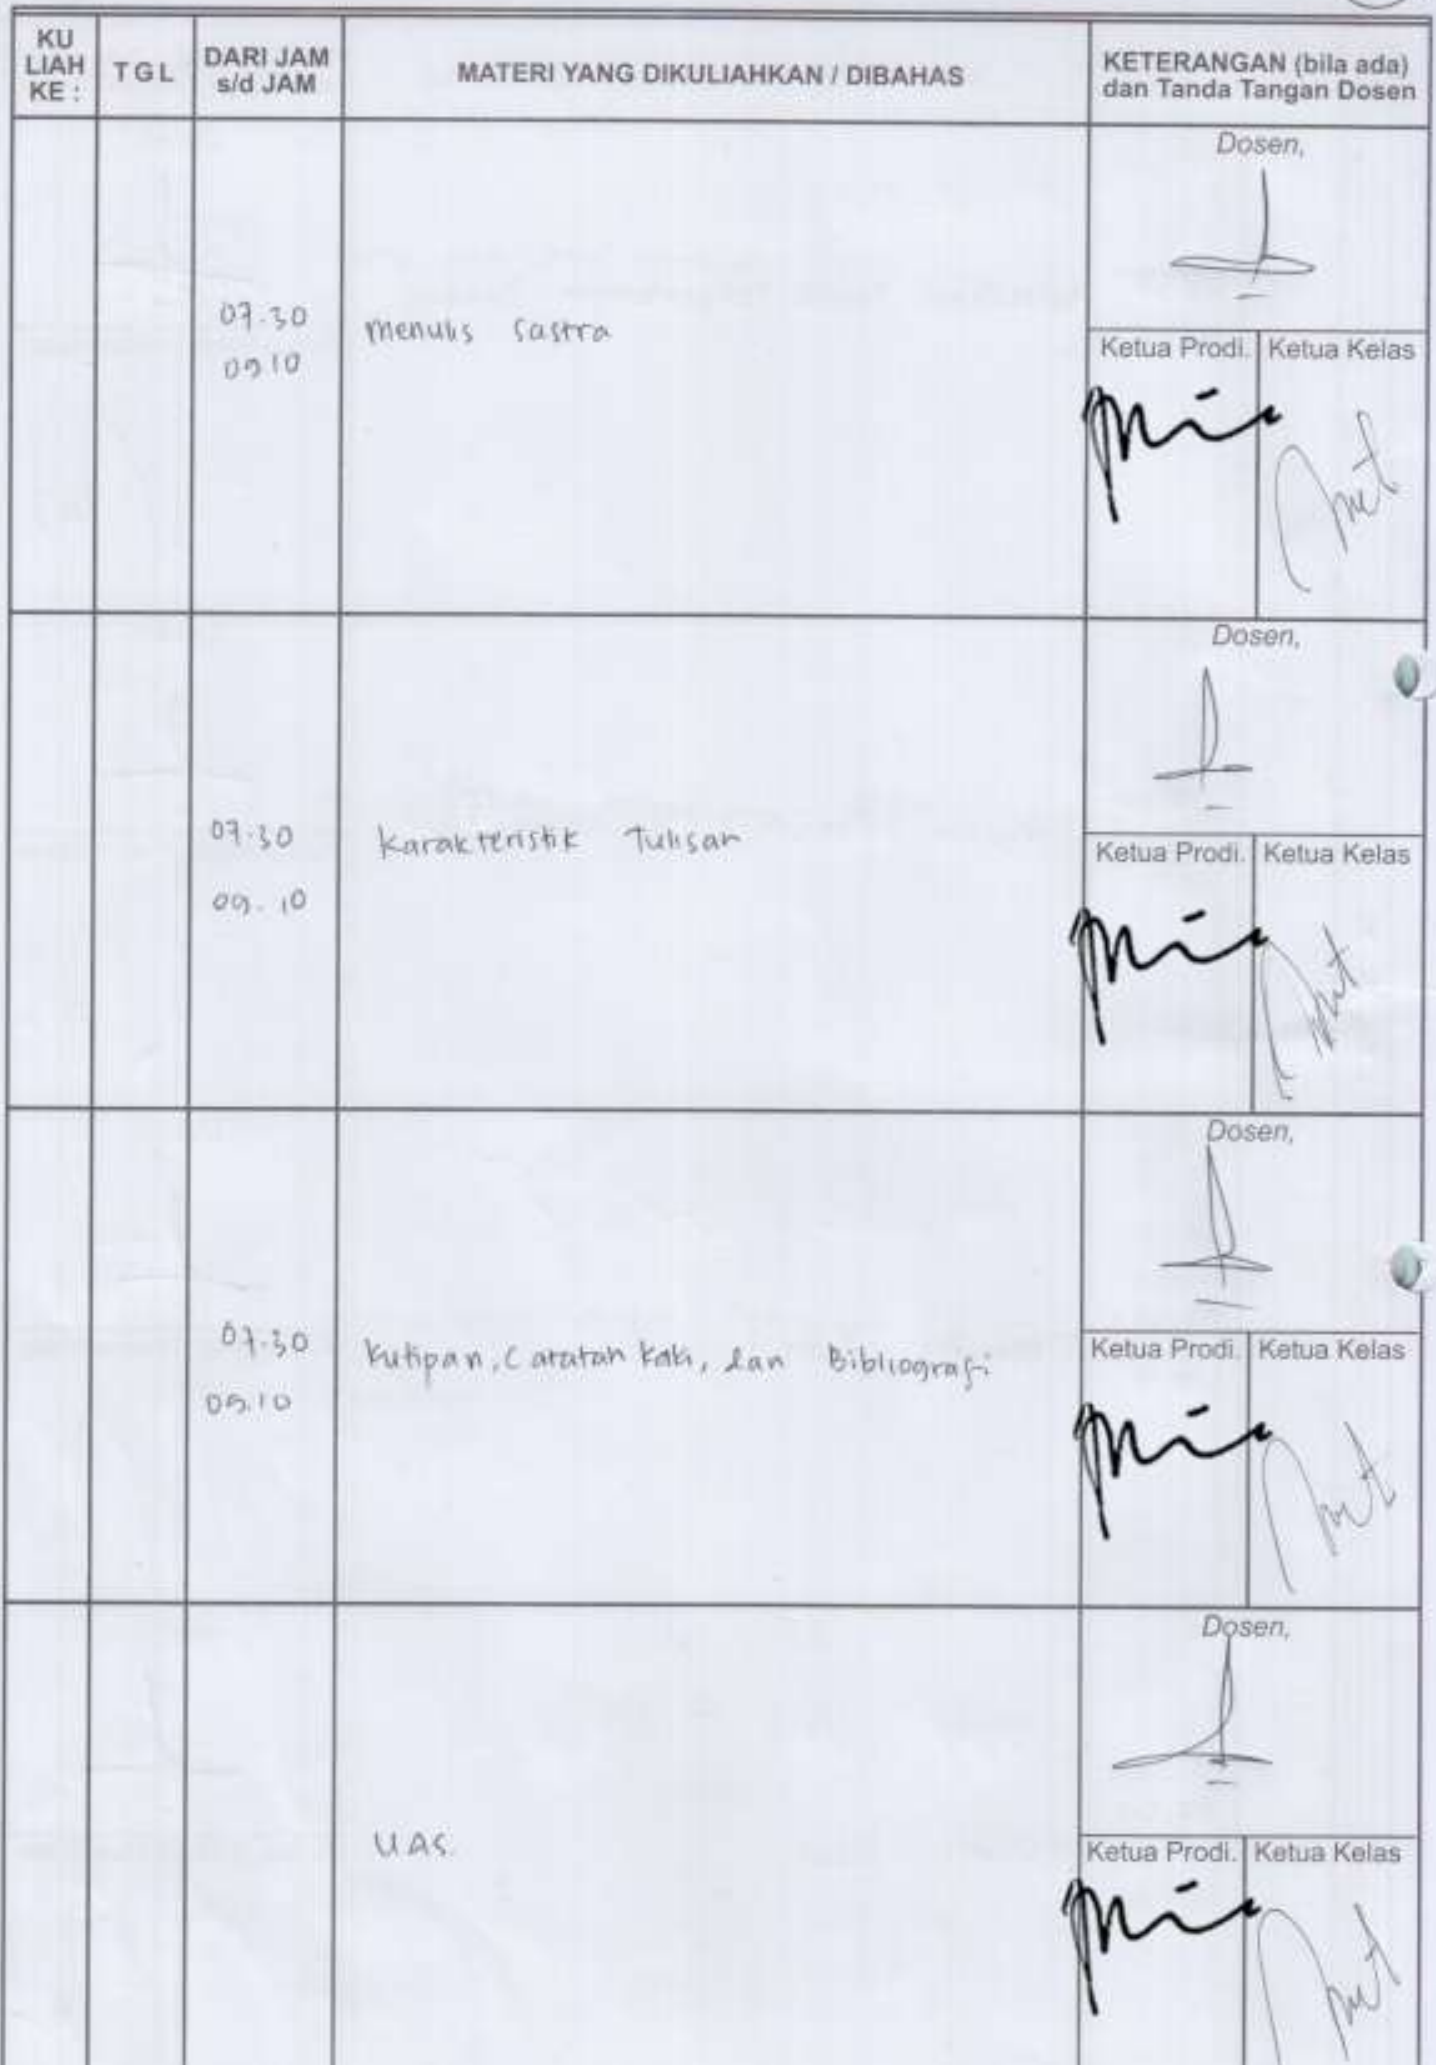 KU
LIAH
KE :
TGL
DARI JAM
s/d JAM
MATERI YANG DIKULIAHKAN / DIBAHAS
KETERANGAN (bila ada)
dan Tanda Tangan Dosen
Dosen,
07.30
09 10
Menulis Sastra
Ketua Prodi.
Ketua Kelas
Dosen,
07.30
09.10
Karakteristik Tulisan
Ketua Prodi.
Ketua Kelas
Dosen,
07.30
09.10
Kutipan, Catatan Kaki, dan Bibliografi
Ketua Prodi.
Ketua Kelas
Dosen,
UAS.
Ketua Prodi.
Ketua Kelas